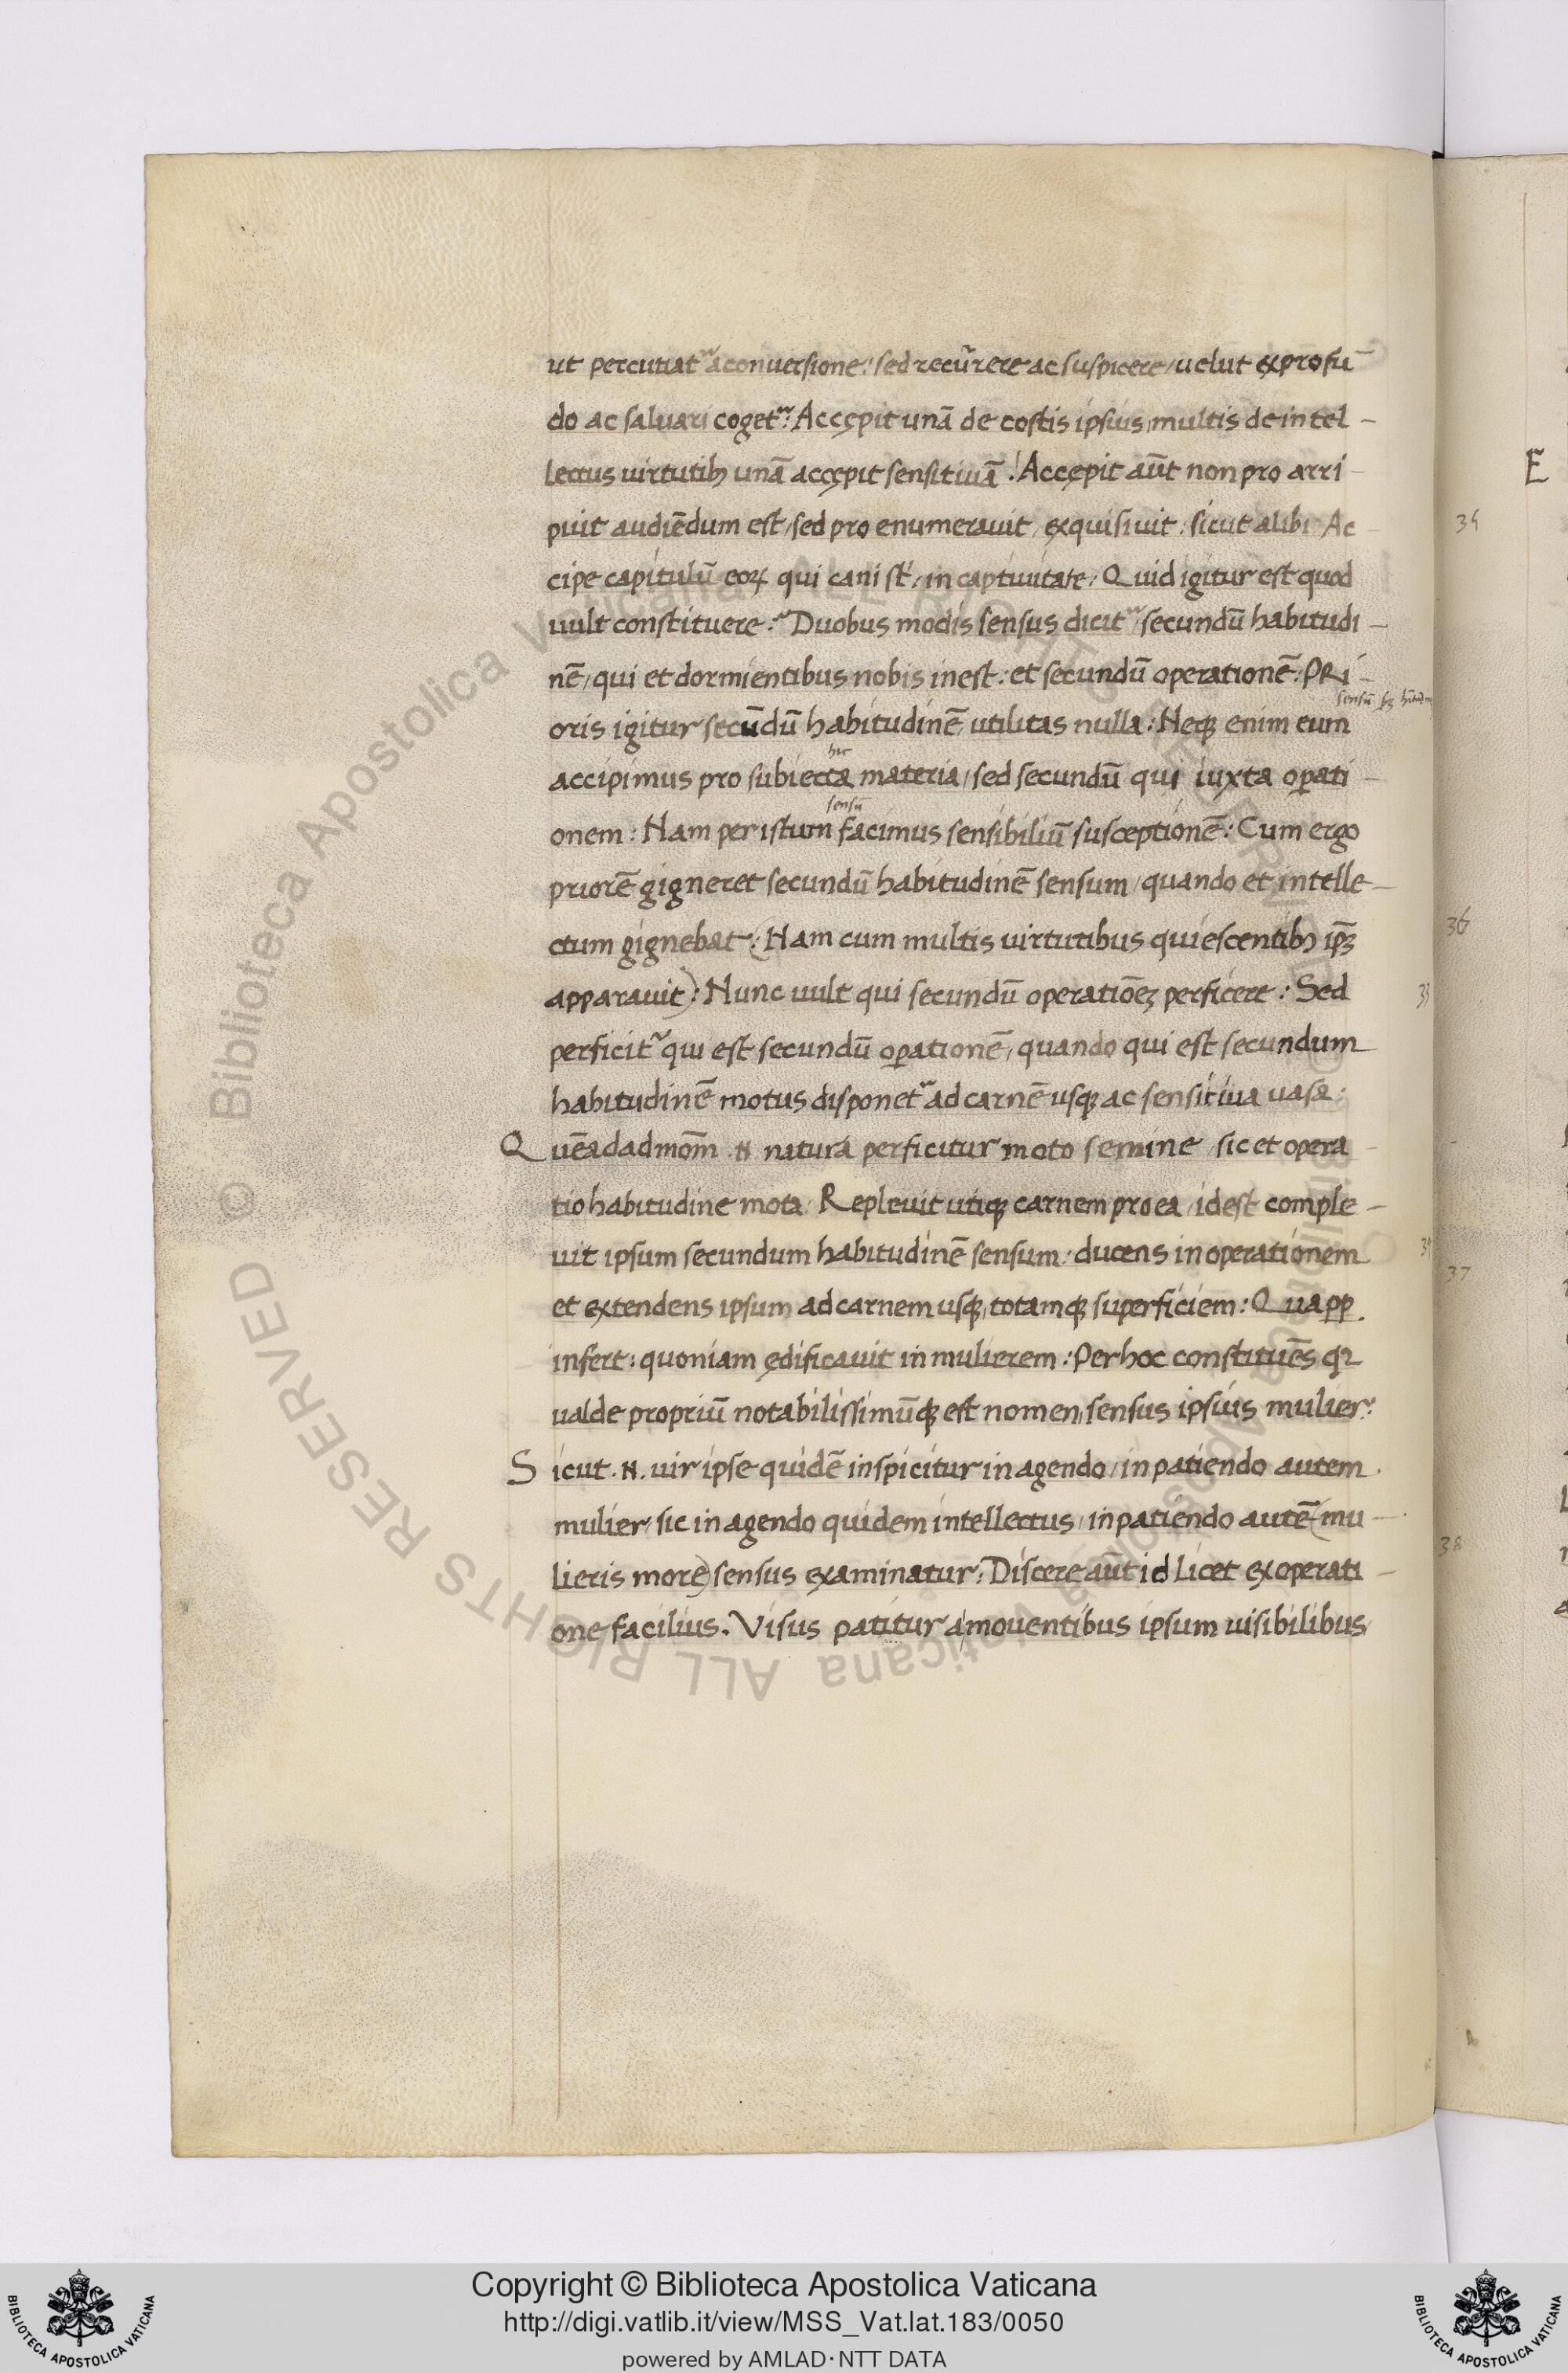 ut percutiat᷑ a conuersione: sed recur̃rere ac suspicere / uelut ex profū
do ac saluari coget᷑: Accępit unā de costis ipsius / multis de intel -
lectus uirtutibꝫ unā accępit sensitiuā: Accępit aūt non pro arri -
puit audiēdum est / sed pro enumerauit / exquisiuit: sicut alibi Ac -
cipe capitulū eoꝝ qui cani st̄ / in captiuitate / Quid igitur est quod
uult constituere: Duobus modis sensus dicit᷑ / secundū habitudi -
nē / qui et dormientibus nobis inest: et secundū operationē: PRi -
sensū sꝫ hītudinē
oris igitur secūdū habitudinē / utilitas nulla: Neqꝫ enim eum
hic
accipimus pro subiecta materia / sed secundū qui iuxta oꝑati -
sensū
onem: Nam per istum facimus sensibiliū susceptionē: Cum ergo
priorē gigneret secundū habitudinē sensum / quando et intelle -
ctum gignebat: (Nam cum multis uirtutibus quiescentibꝫ ip̄ꝫ
apparauit): Nunc uult qui secundū operatiōeꝫ perficere: Sed
perficit᷑ qui est secundū oꝑationē / quando qui est secundum
habitudinē motus disponet᷑ ad carnē usqꝫ ac sensitiua uasa:
Quēadadmom̄ .N. natura perficitur moto semine / sic et opera -
tio habitudine mota / Repleuit utiqꝫ carnem pro ea / idest comple -
uit ipsum secundum habitudinē sensum: ducens in operationem
et extendens ipsum ad carnem usqꝫ / totamqꝫ superficiem: Quaꝓꝑ
infert: quoniam ędificauit in mulierem: Per hoc constituēs qꝛ
ualde propriū notabilissimūqꝫ est nomen / sensus ipsius mulier:
Sicut .N. uir ipse quidē inspicitur in agendo / in patiendo autem
mulier / sic in agendo quidem intellectus / in patiendo autē (mu -
lieris more) sensus examinatur: Discere aūt id licet ex operati -
one facilius. Visus patitur a mouentibus ipsum uisibilibus /
E
35
36
33
34
37
38
© Biblioteca Apostolica Vaticana ALL RIGHTS RESERVED
© Biblioteca Apostolica Vaticana ALL RIGHTS RESERVED
Copyright © Biblioteca Apostolica Vaticana
http://digi.vatlib.it/view/MSS_Vat.lat.183/0050
powered by AMLAD·NTT DATA
BIBLIOTECA APOSTOLICA VATICANA
BIBLIOTECA APOSTOLICA VATICANA